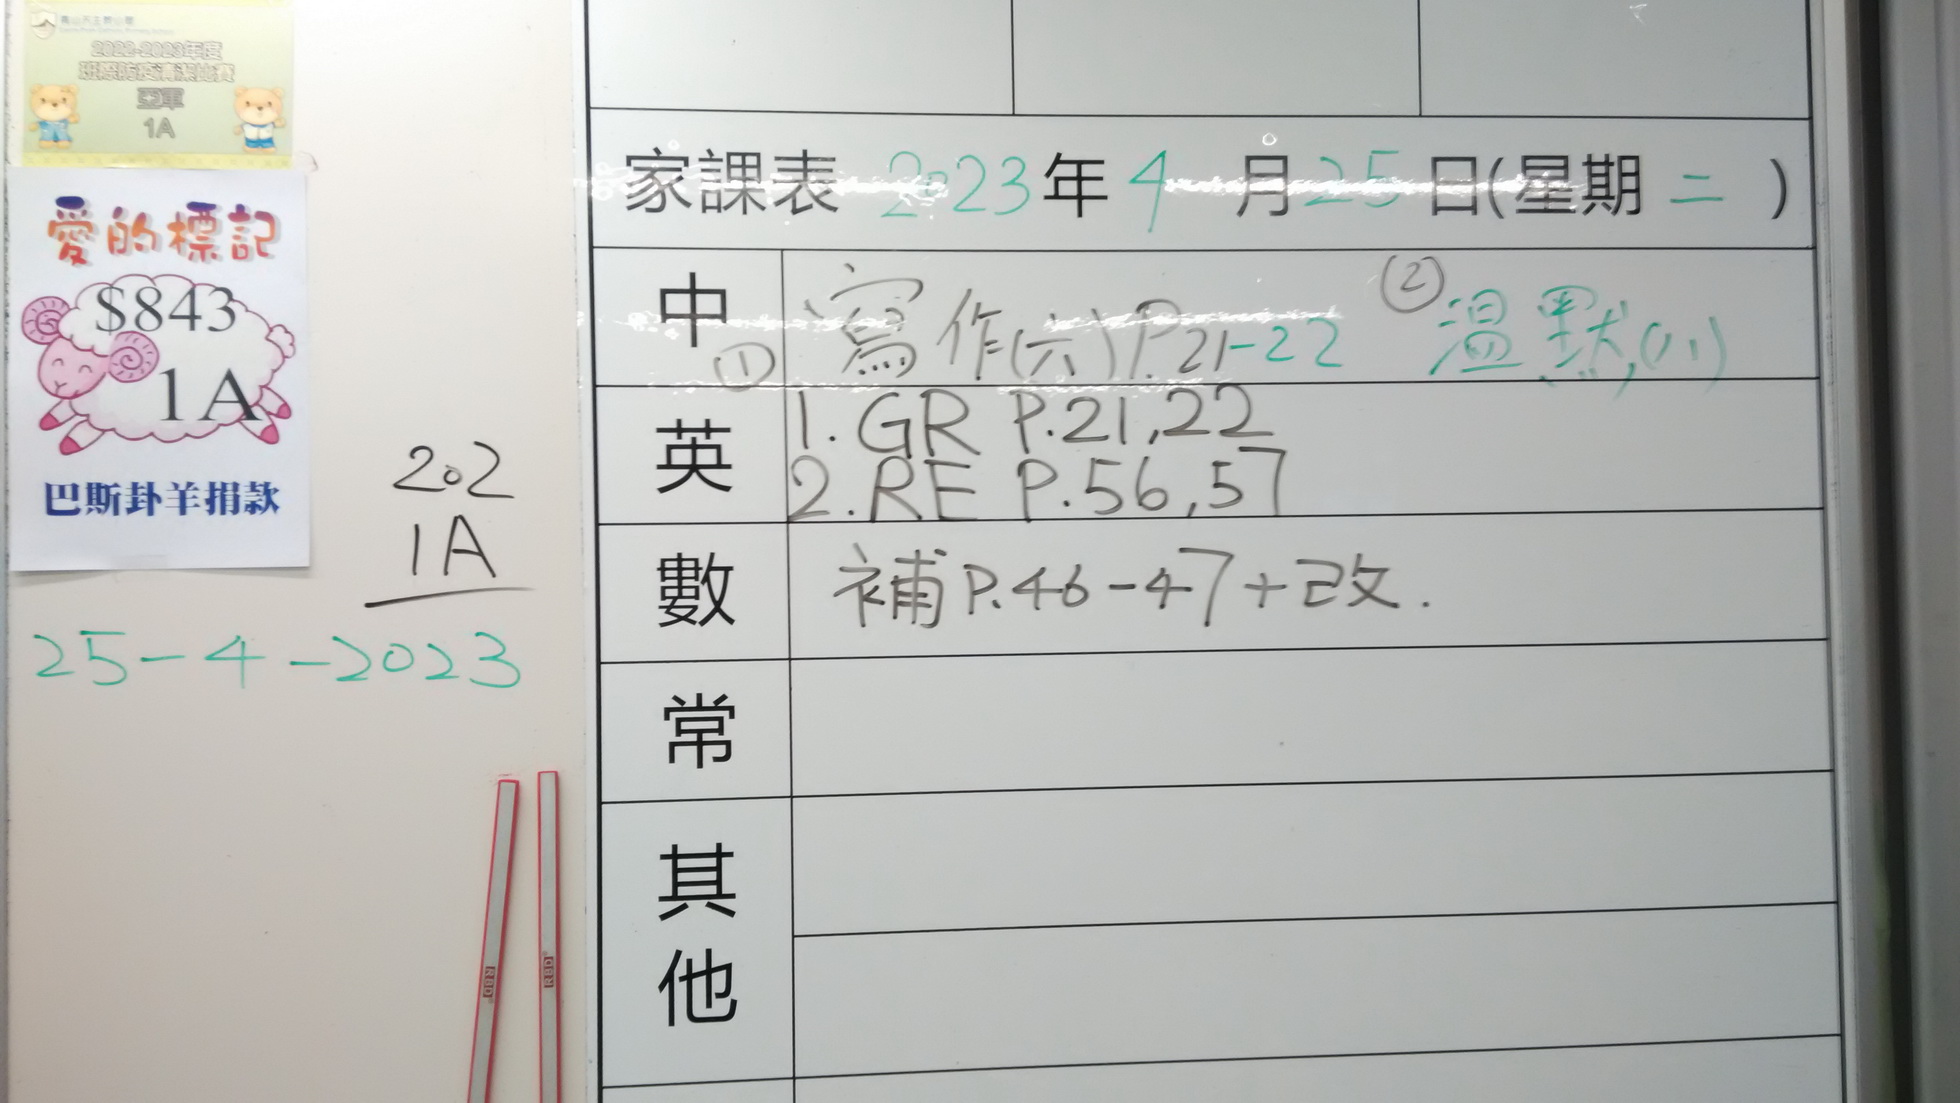 2022-2023年度
班際防疫清潔比賽
亞軍
1A
愛的標記
$843
1A
巴斯卦羊捐款
202
1A
25-4-2023
家課表 2023年4月25日(星期二)
中 ① 寫作(六)P.21-22 ② 溫默(八)
英 1. GR P.21,22
2. RE P.56,57
數 補P.46-47+改.
常
其他
RBD
RBD